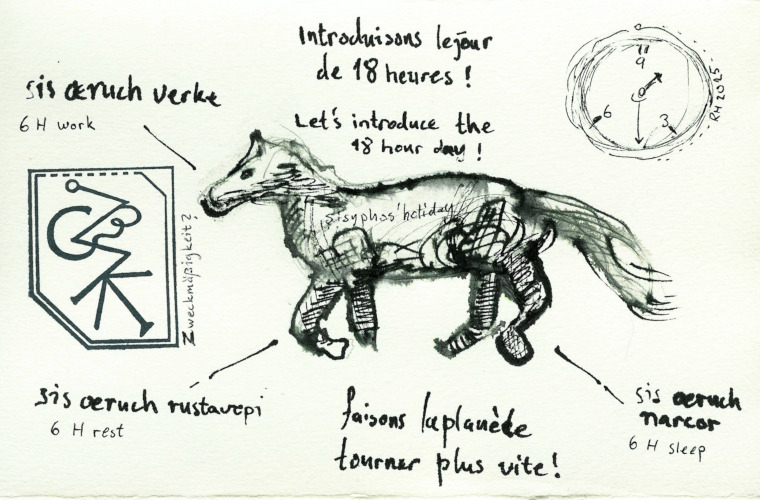 Introduisons le jour
de 18 heures !
Let's introduce the
18 hour day !
9
6
3
RH 2025
sis œruch verke
6 H work
Zweckmäßigkeit?
Sisyphos' holiday
sis œruch rustavepi
6 H rest
faisons la planète
tourner plus vite !
sis œruch
narcor
6 H sleep